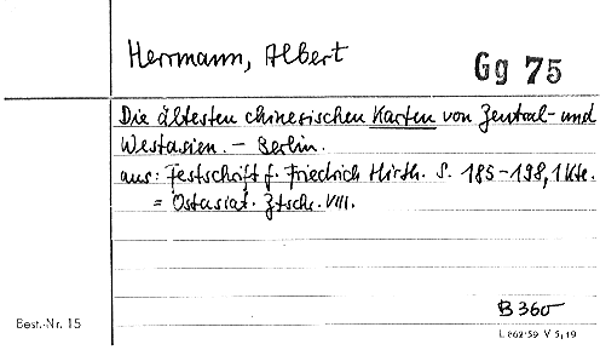 Herrmann, Albert
Gg 75
Die ältesten chinesischen Karten von Zentral- und
Westasien. - Berlin.
aus: Festschrift f. Friedrich Hirth. S. 185-198, 1 Kte.
= Ostasiat. Ztschr. VIII.
B 360
Best.-Nr. 15
L 862·59 V 5,19